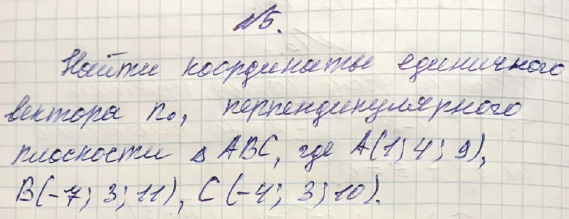 №5.
Найти координаты единичного
вектора n₀, перпендикулярного
плоскости △ ABC, где A(1; 4; 9),
B(-7; 3; 11), C(-4; 3; 10).